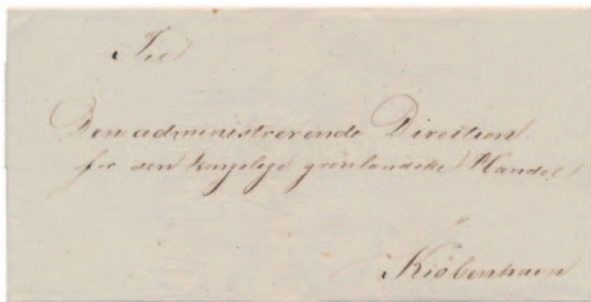 Til
Den administrerende Direction
for den kongelige grönlandske Handel
Kiöbenhavn